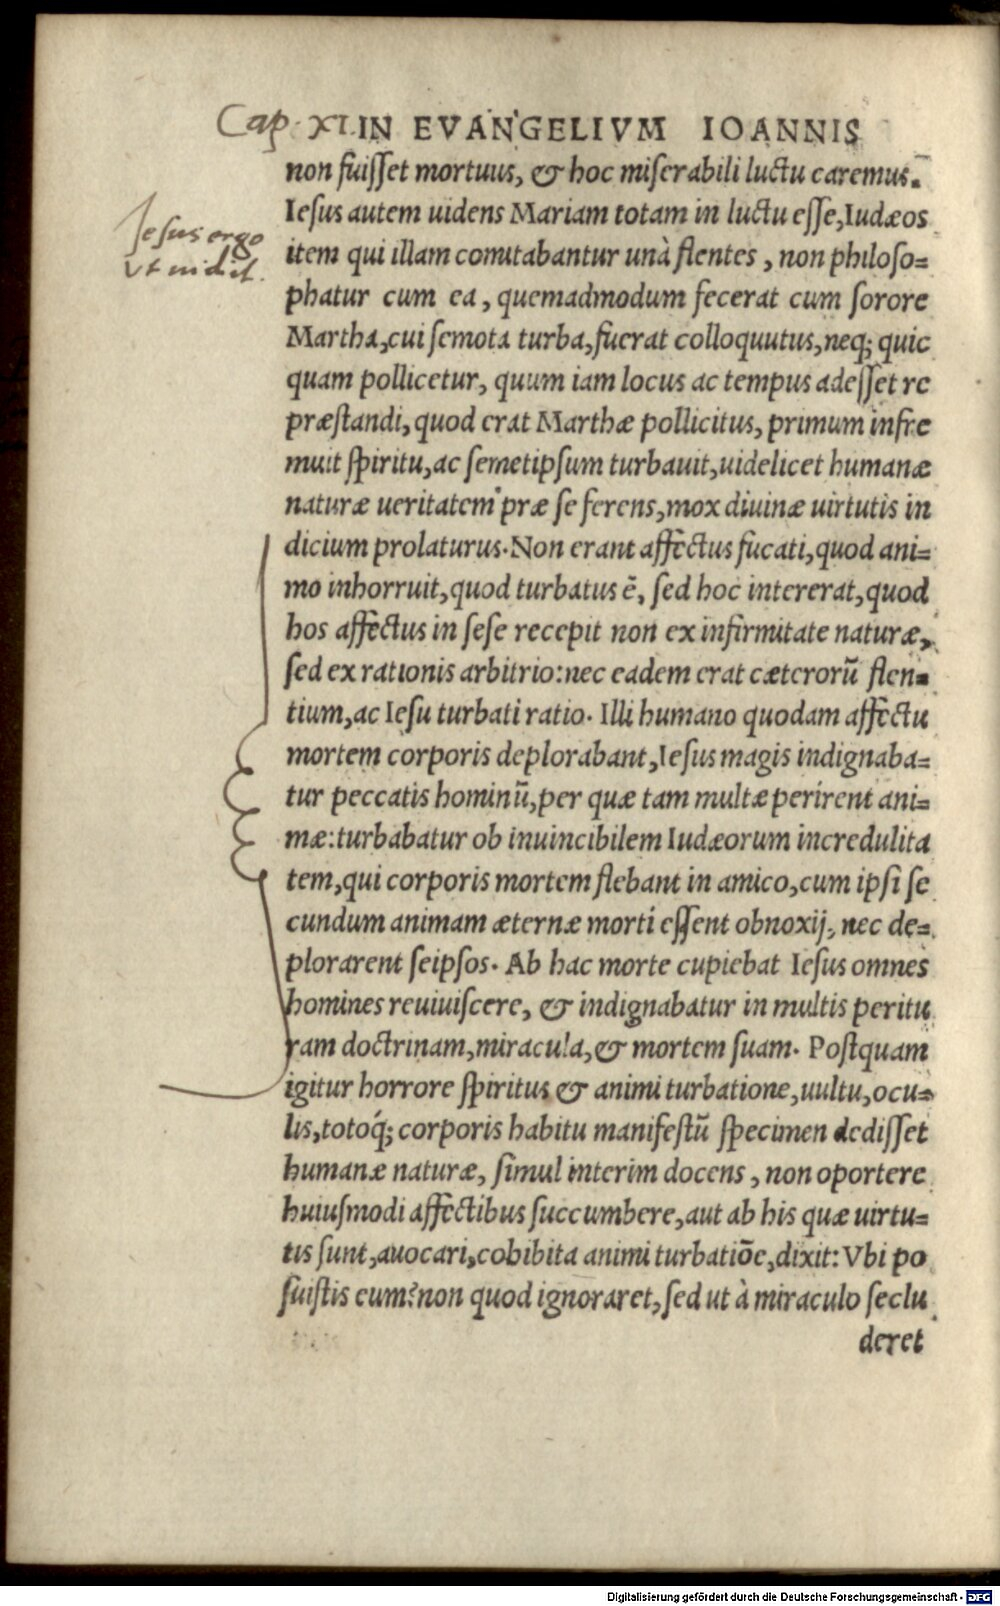 Cap. XI. IN EVANGELIVM IOANNIS
non fuisset mortuus, & hoc miserabili luctu caremus.
Iesus autem uidens Mariam totam in luctu esse, Iudæos
Iesus ergo
ut uidit.
item qui illam comitabantur unà flentes, non philoso=
phatur cum ea, quemadmodum fecerat cum sorore
Martha, cui semota turba, fuerat colloquutus, neq; quic
quam pollicetur, quum iam locus ac tempus adesset re
præstandi, quod erat Marthæ pollicitus, primum infre
muit spiritu, ac semetipsum turbauit, uidelicet humanæ
naturæ ueritatem præ se ferens, mox diuinæ uirtutis in
dicium prolaturus. Non erant affectus fucati, quod ani=
mo inhorruit, quod turbatus ẽ, sed hoc intererat, quod
hos affectus in sese recepit non ex infirmitate naturæ,
sed ex rationis arbitrio: nec eadem erat cæterorũ flen=
tium, ac Iesu turbati ratio. Illi humano quodam affectu
mortem corporis deplorabant, Iesus magis indignaba=
tur peccatis hominũ, per quæ tam multæ perirent ani=
mæ: turbabatur ob inuincibilem Iudæorum incredulita
tem, qui corporis mortem flebant in amico, cum ipsi se
cundum animam æternæ morti essent obnoxij, nec de=
plorarent seipsos. Ab hac morte cupiebat Iesus omnes
homines reuiuiscere, & indignabatur in multis peritu
ram doctrinam, miracula, & mortem suam. Postquam
igitur horrore spiritus & animi turbatione, uultu, ocu=
lis, totoq́; corporis habitu manifestũ specimen dedisset
humanæ naturæ, simul interim docens, non oportere
huiusmodi affectibus succumbere, aut ab his quæ uirtu=
tis sunt, auocari, cohibita animi turbatiõe, dixit: Vbi po
suistis eum? non quod ignoraret, sed ut à miraculo seclu
deret
Digitalisierung gefördert durch die Deutsche Forschungsgemeinschaft - DFG